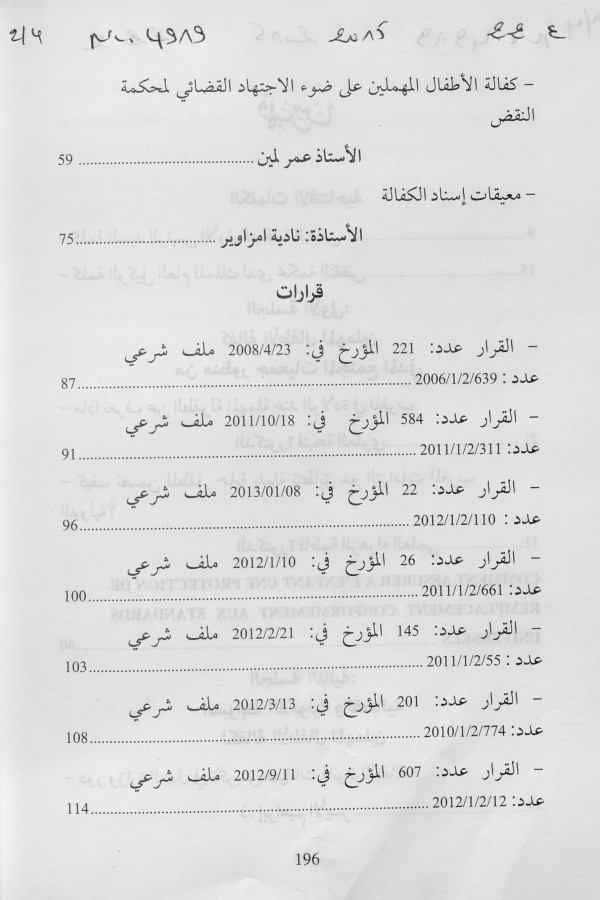 2/4 4989 2015 ع
– كفالة الأطفال المهملين على ضوء الاجتهاد القضائي لمحكمة
النقض
الأستاذ عمر لمين ................................ 59
– معيقات إسناد الكفالة
الأستاذة: نادية امزاوير ................................ 75
قرارات
– القرار عدد: 221 المؤرخ في: 2008/4/23 ملف شرعي
عدد : 2006/1/2/639 ................................ 87
– القرار عدد: 584 المؤرخ في: 2011/10/18 ملف شرعي
عدد: 2011/1/2/311 ................................ 91
– القرار عدد: 22 المؤرخ في: 2013/01/08 ملف شرعي
عدد : 2012/1/2/110 ................................ 96
– القرار عدد: 26 المؤرخ في: 2012/1/10 ملف شرعي
عدد: 2011/1/2/661 ................................ 100
– القرار عدد: 145 المؤرخ في: 2012/2/21 ملف شرعي
عدد : 2011/1/2/55 ................................ 103
– القرار عدد: 201 المؤرخ في: 2012/3/13 ملف شرعي
عدد: 2010/1/2/774 ................................ 108
– القرار عدد: 607 المؤرخ في: 2012/9/11 ملف شرعي
عدد: 2012/1/2/12 ................................ 114
196